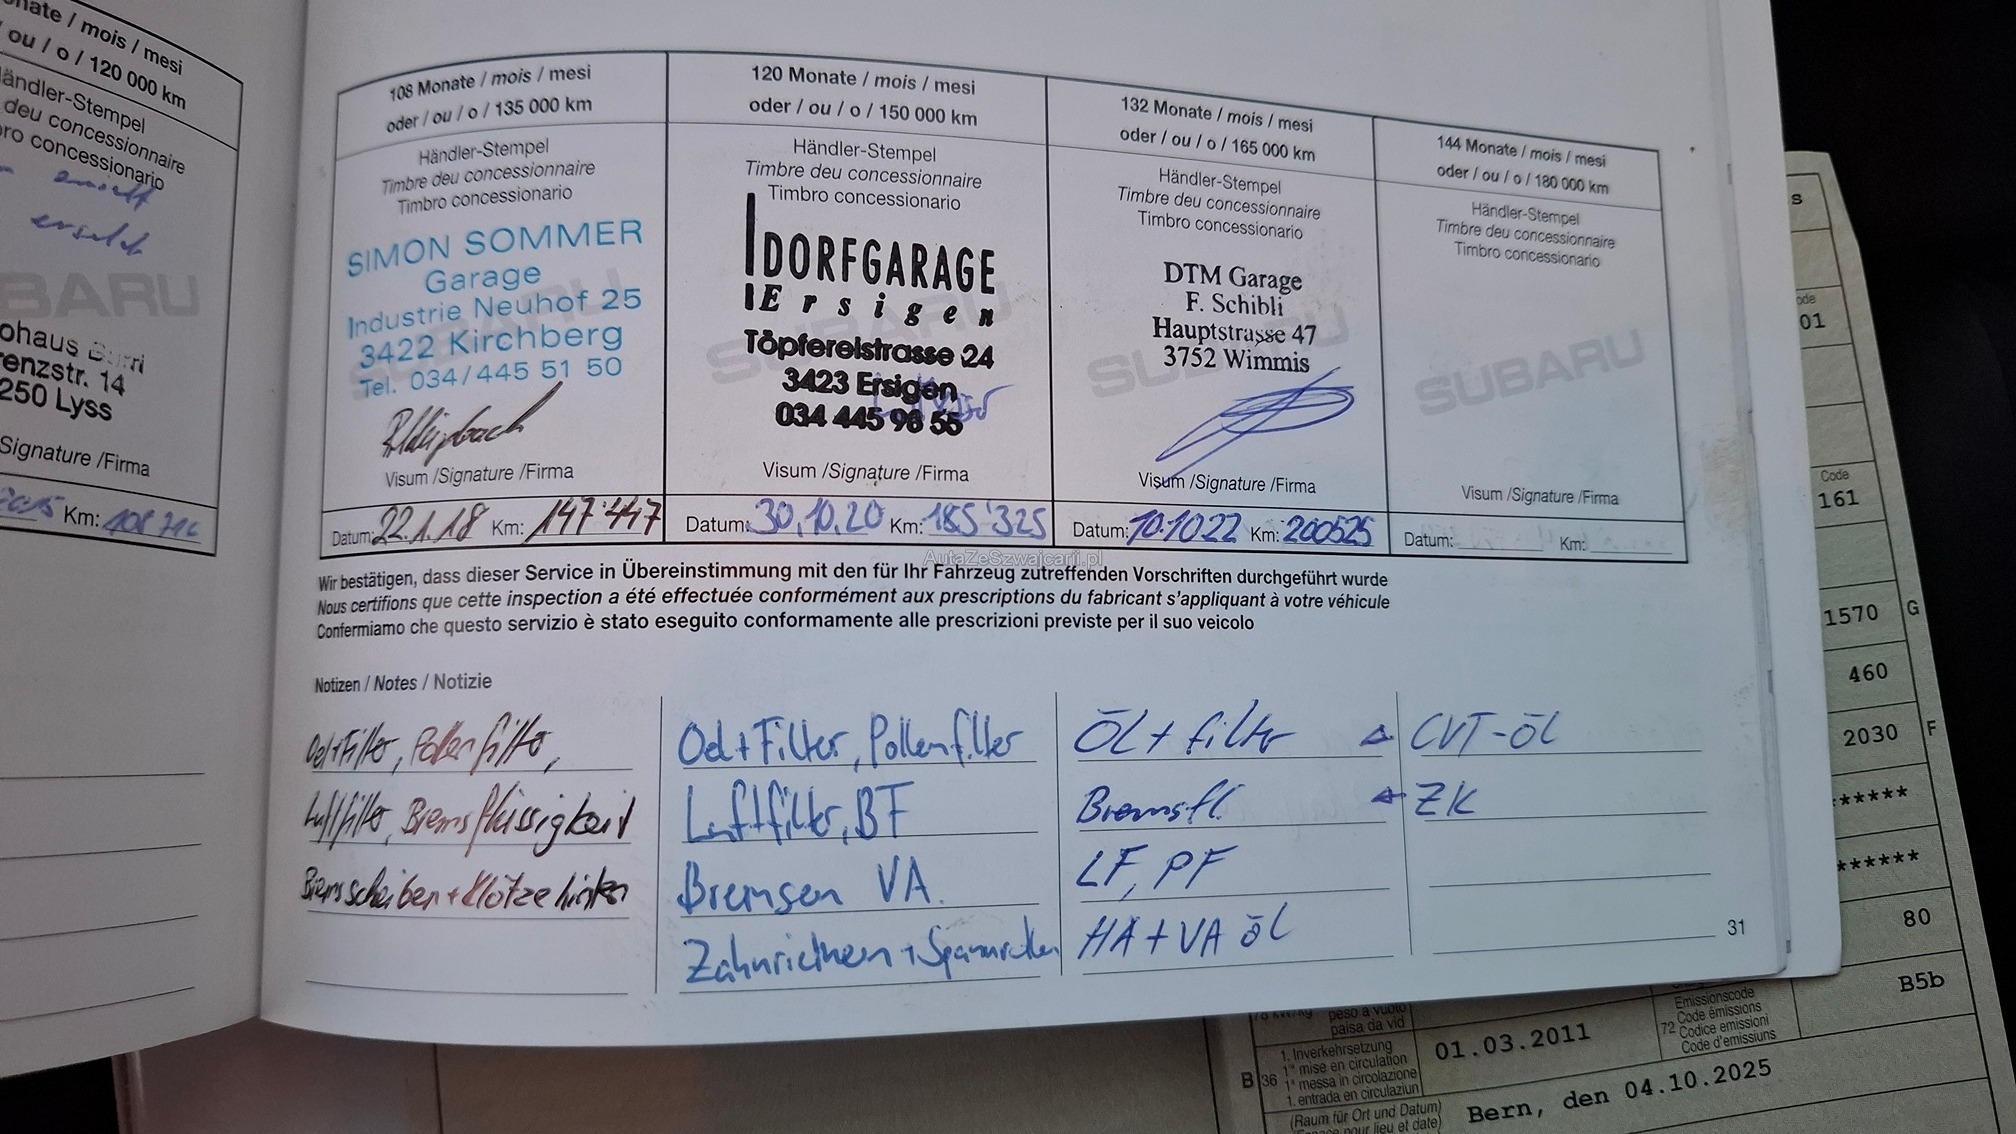 nate / mois / mesi
ou / o / 120 000 km
ändler-Stempel
deu concessionnaire
ro concessionario
ersetzt
SUBARU
ohaus
renzstr. 14
250 Lyss
Signature /Firma
Km: 108 716
108 Monate / mois / mesi
oder / ou / o / 135 000 km
Händler-Stempel
Timbre deu concessionnaire
Timbro concessionario
SIMON SOMMER
Garage
Industrie Neuhof 25
3422 Kirchberg
Tel. 034/445 51 50
SUBARU
Visum /Signature /Firma
Datum: 22.1.18 Km: 147'447
120 Monate / mois / mesi
oder / ou / o / 150 000 km
Händler-Stempel
Timbre deu concessionnaire
Timbro concessionario
DORFGARAGE
Ersigen
Töpfereistrasse 24
3423 Ersigen
034 445 96 55
SUBARU
Visum /Signature /Firma
Datum: 30.10.20 Km: 185'325
132 Monate / mois / mesi
oder / ou / o / 165 000 km
Händler-Stempel
Timbre deu concessionnaire
Timbro concessionario
DTM Garage
F. Schibli
Hauptstrasse 47
3752 Wimmis
SUBARU
Visum /Signature /Firma
Datum: 10.10.22 Km: 200525
144 Monate / mois / mesi
oder / ou / o / 180 000 km
Händler-Stempel
Timbre deu concessionnaire
Timbro concessionario
SUBARU
Visum /Signature /Firma
Datum: Km:
AutaZeSzwajcarii.pl
Wir bestätigen, dass dieser Service in Übereinstimmung mit den für Ihr Fahrzeug zutreffenden Vorschriften durchgeführt wurde
Nous certifions que cette inspection a été effectuée conformément aux prescriptions du fabricant s'appliquant à votre véhicule
Confermiamo che questo servizio è stato eseguito conformamente alle prescrizioni previste per il suo veicolo
Notizen / Notes / Notizie
Oel+Filter, Pollenfilter,
Luftfilter, Bremsflüssigkeit
Bremsscheiben + Klötze hinten
Oel + Filter, Pollenfilter
Luftfilter, BF
Bremsen VA.
Zahnriemen + Spannrollen
ÖL + filter
Bremsfl.
LF, PF
HA + VA öl
CVT-öl
ZK
31
s
ode
01
Code
161
1570 G
460
2030 F
******
******
80
B5b
peso a vuoto
paisa da vid
B 36
1. Inverkehrsetzung
1re mise en circulation
1a messa in circolazione
1. entrada en circulaziun
01.03.2011
72
Emissionscode
Code émissions
Codice emissioni
Code d'emissiuns
(Raum für Ort und Datum)
pour lieu et date)
Bern, den 04.10.2025